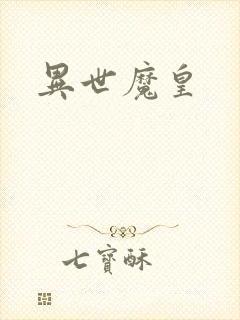 異世魔皇
七寶酥